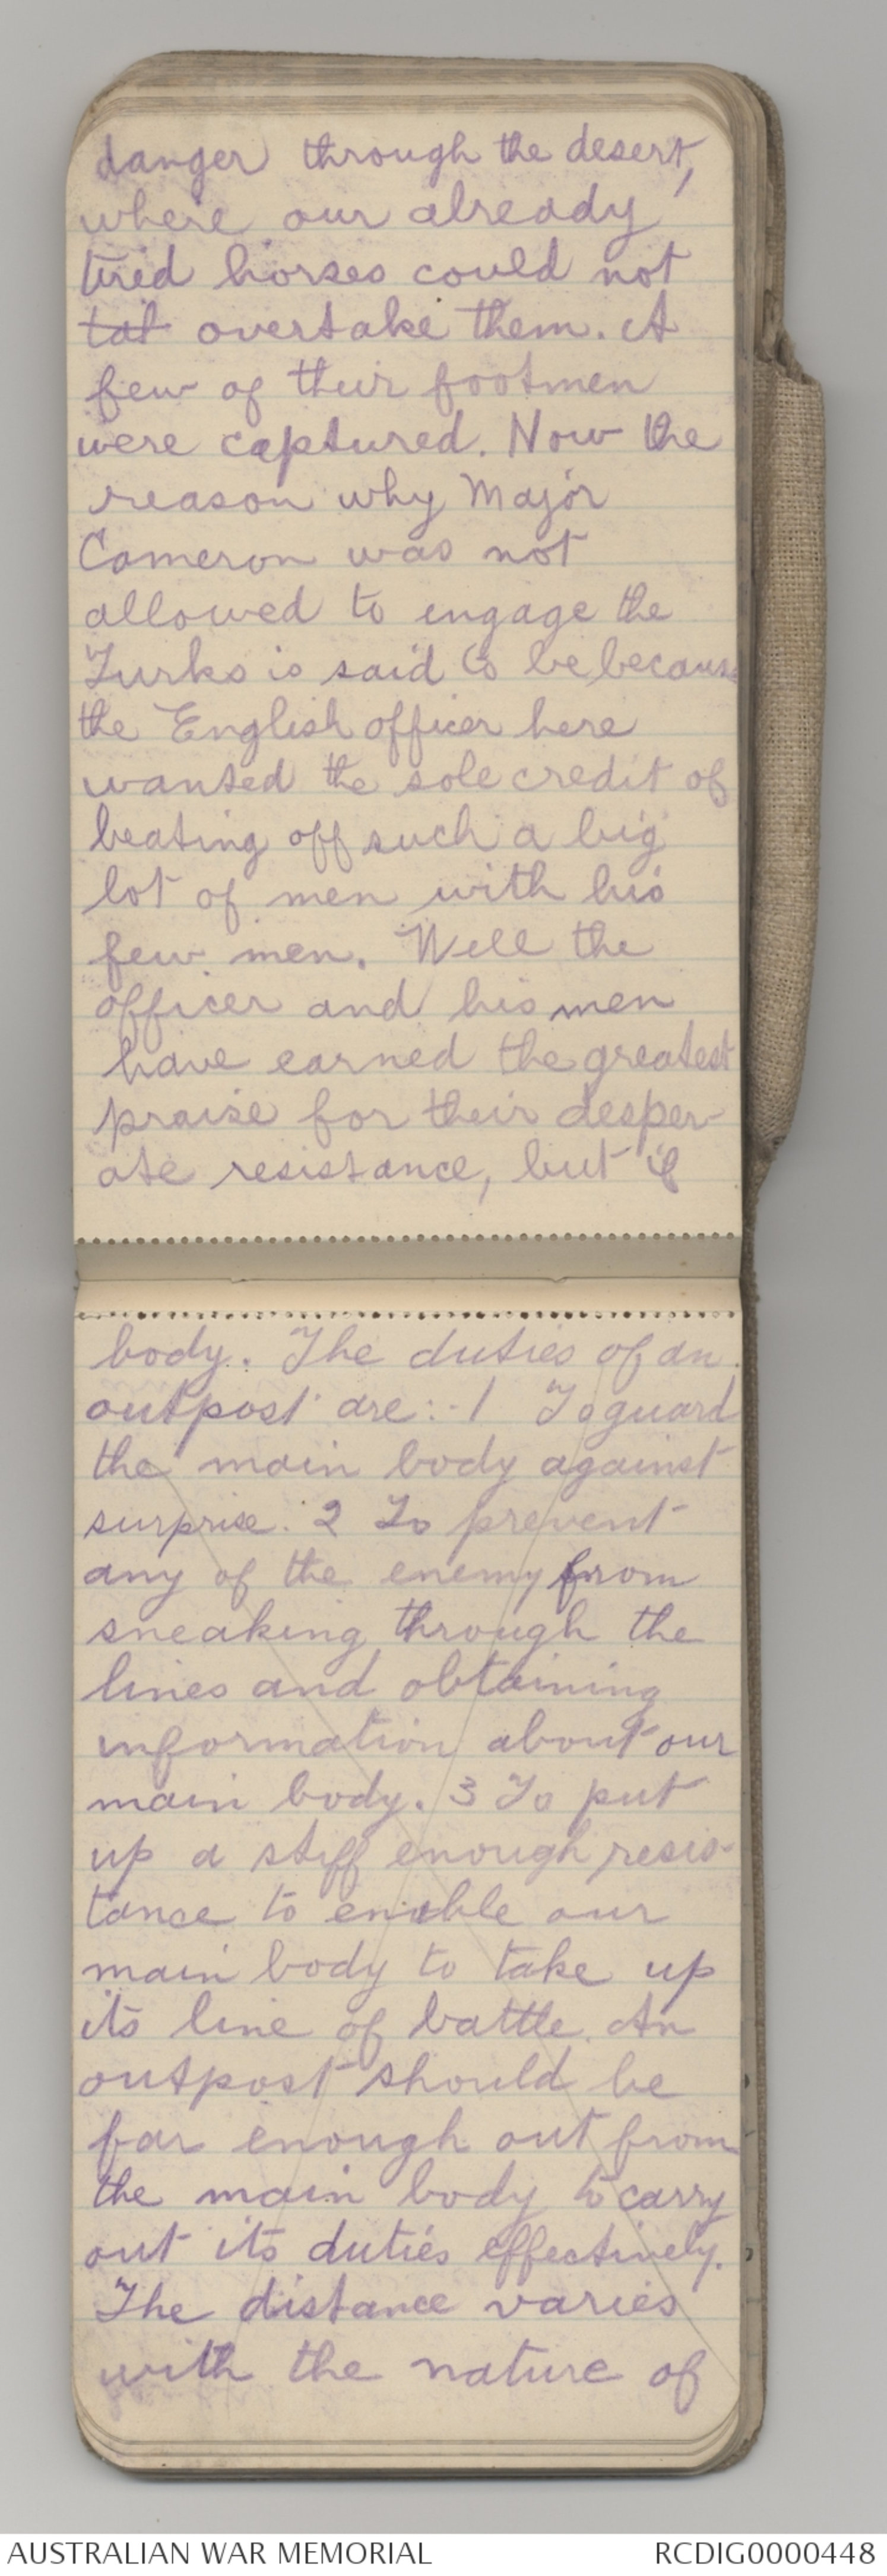 danger through the desert,
where our already
tired horses could not
tat overtake them. A
few of their footmen
were captured. Now the
reason why Major
Cameron was not
allowed to engage the
Turks is said to be because
the English officer here
wanted the sole credit of
beating off such a big
lot of men with his
few men. Well the
officer and his men
have earned the greatest
praise for their desper-
ate resistance, but if
body. The duties of an
outpost are:- 1 To guard
the main body against
surprise. 2 To prevent
any of the enemy from
sneaking through the
lines and obtaining
information about our
main body. 3 To put
up a stiff enough resis-
tance to enable our
main body to take up
its line of battle. An
outpost should be
far enough out from
the main body to carry
out its duties effectively.
The distance varies
with the nature of
AUSTRALIAN WAR MEMORIAL
RCDIG0000448